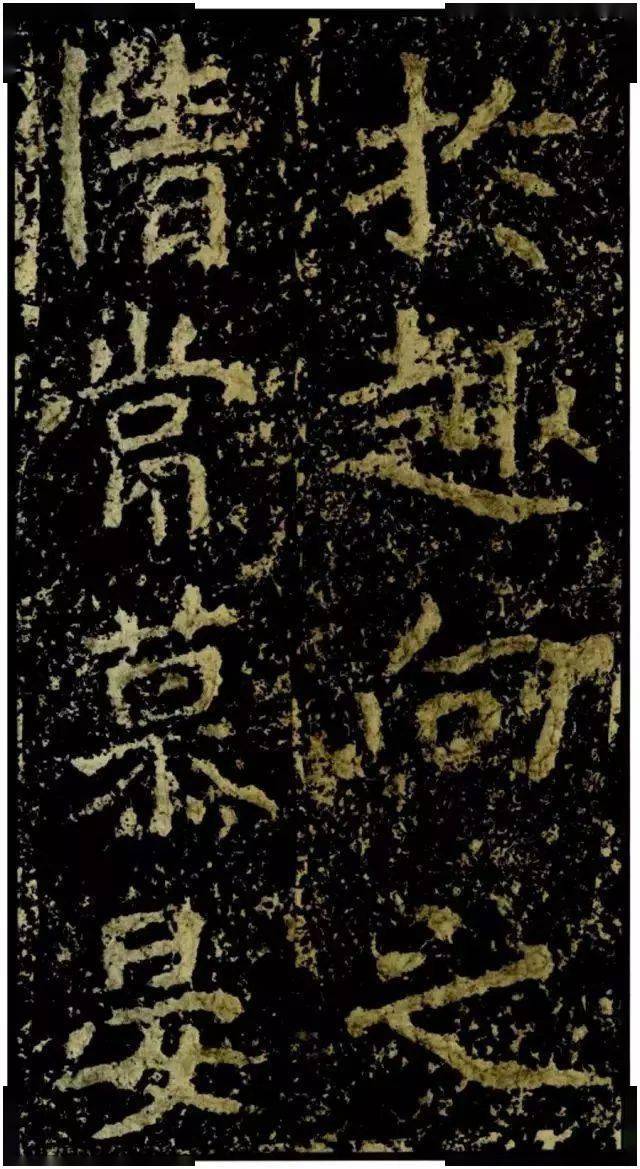 於趣向之
情常慕晏